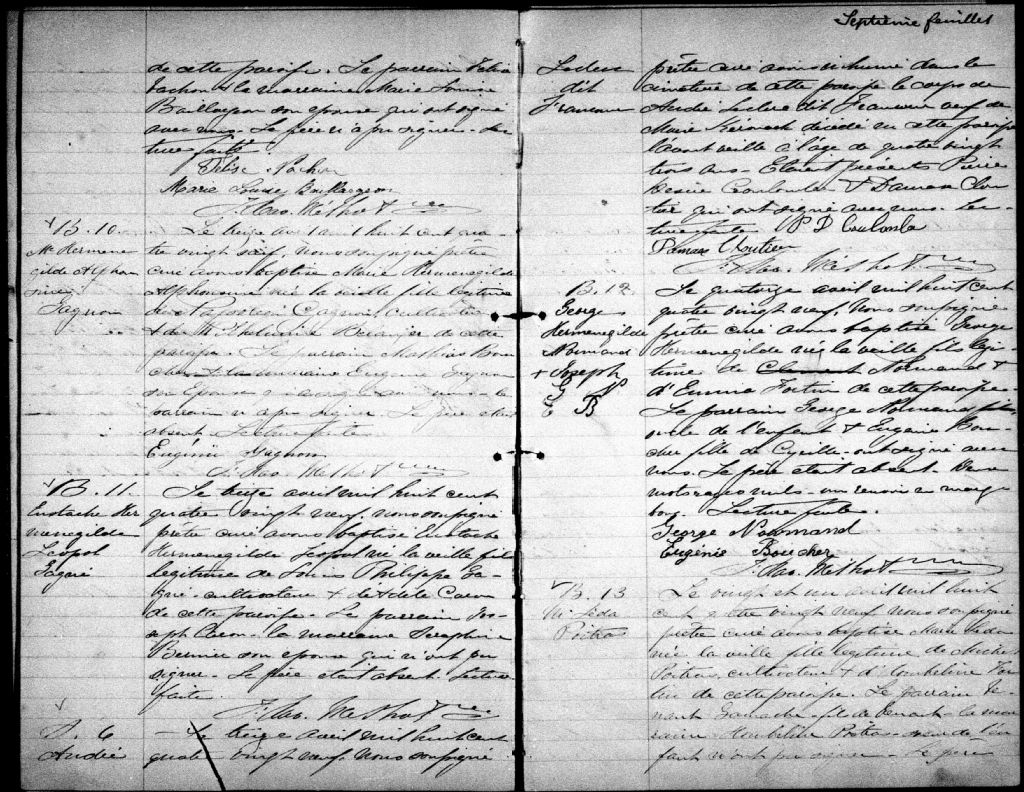 de cette paroisse. Le parrain
Pachon & la marraine Marie Louise
Baillargeon son épouse qui ont signé
avec nous. Le père n'a pu signer. Lec-
ture faite.
Pachon
Marie Louise Baillargeon
F. Xav. Méthot ptre
B. 10.
M. Hermene
gilde Alphon
sine
Gagnon
Le treize avril mil huit cent qua-
tre vingt neuf, nous soussigné prêtre
curé avons baptisé Marie Hermenegilde
Alphonsine née la veille fille légitime
Gagnon, cultivateur
& de M. de cette
paroisse. Le parrain Mathias Bou
cher & la marraine Eugénie Gagnon
son épouse
parrain n'a pu signer. Le père était
absent. Lecture faite
Eugénie Gagnon
F. Xav. Méthot ptre
B. 11.
Eustache Her
menegilde
Léopol
Gagné
Le treize avril mil huit cent
quatre vingt neuf, nous soussigné
prêtre curé avons baptisé Eustache
Hermenegilde Léopol né la veille fils
légitime de Louis Philippe Ga-
gné, cultivateur & d' Caron
de cette paroisse. Le parrain Jos-
seph Caron, la marraine Séraphine
Bernier son épouse qui n'ont pu
signer. Le père était absent. Lecture
faite.
F. Xav. Méthot ptre
S. 6
André
Le treize avril mil huit cent
quatre vingt neuf, nous soussigné
Septième feuillet
Leclerc
dit
Francoeur
prêtre curé avons inhumé dans le
cimetière de cette paroisse le corps de
André Leclerc dit Francoeur veuf de
Marie décédé en cette paroisse
l'avant veille à l'âge de quatre vingt
trois ans. Etaient présents Pierre
Coulombe & Damase Clou-
tier qui ont signé avec nous. Lec-
ture faite P D Coulombe
Damase Cloutier
F. Xav. Méthot ptre
B. 12.
George
Hermenegilde
Normand
+ Joseph
G N
E B
Le quatorze avril mil huit cent
quatre vingt neuf, nous soussigné
prêtre curé avons baptisé George
Hermenegilde né la veille fils légi-
time de Clement Normand &
d'Emma Fortin de cette paroisse.
Le parrain George Normand
oncle de l'enfant & Eugénie Bou-
cher fille de Cyrille ont signé avec
nous. Le père était absent. Deux
mots rayés nuls - un renvoi en marge
bon. Lecture faite.
George Normand
Eugénie Boucher
F. Xav. Méthot ptre
B. 13
M. Léda
Poitras
Le vingt et un avril mil huit
cent quatre vingt neuf nous soussigné
prêtre curé avons baptisé Marie Léda
née la veille fille légitime de Michel
Poitras, cultivateur & d'Ombeline For
tin de cette paroisse. Le parrain Fe-
nant Gamache fils de la mar
raine Ombeline Poitras soeur de l'en
fant n'ont pu signer. Le père